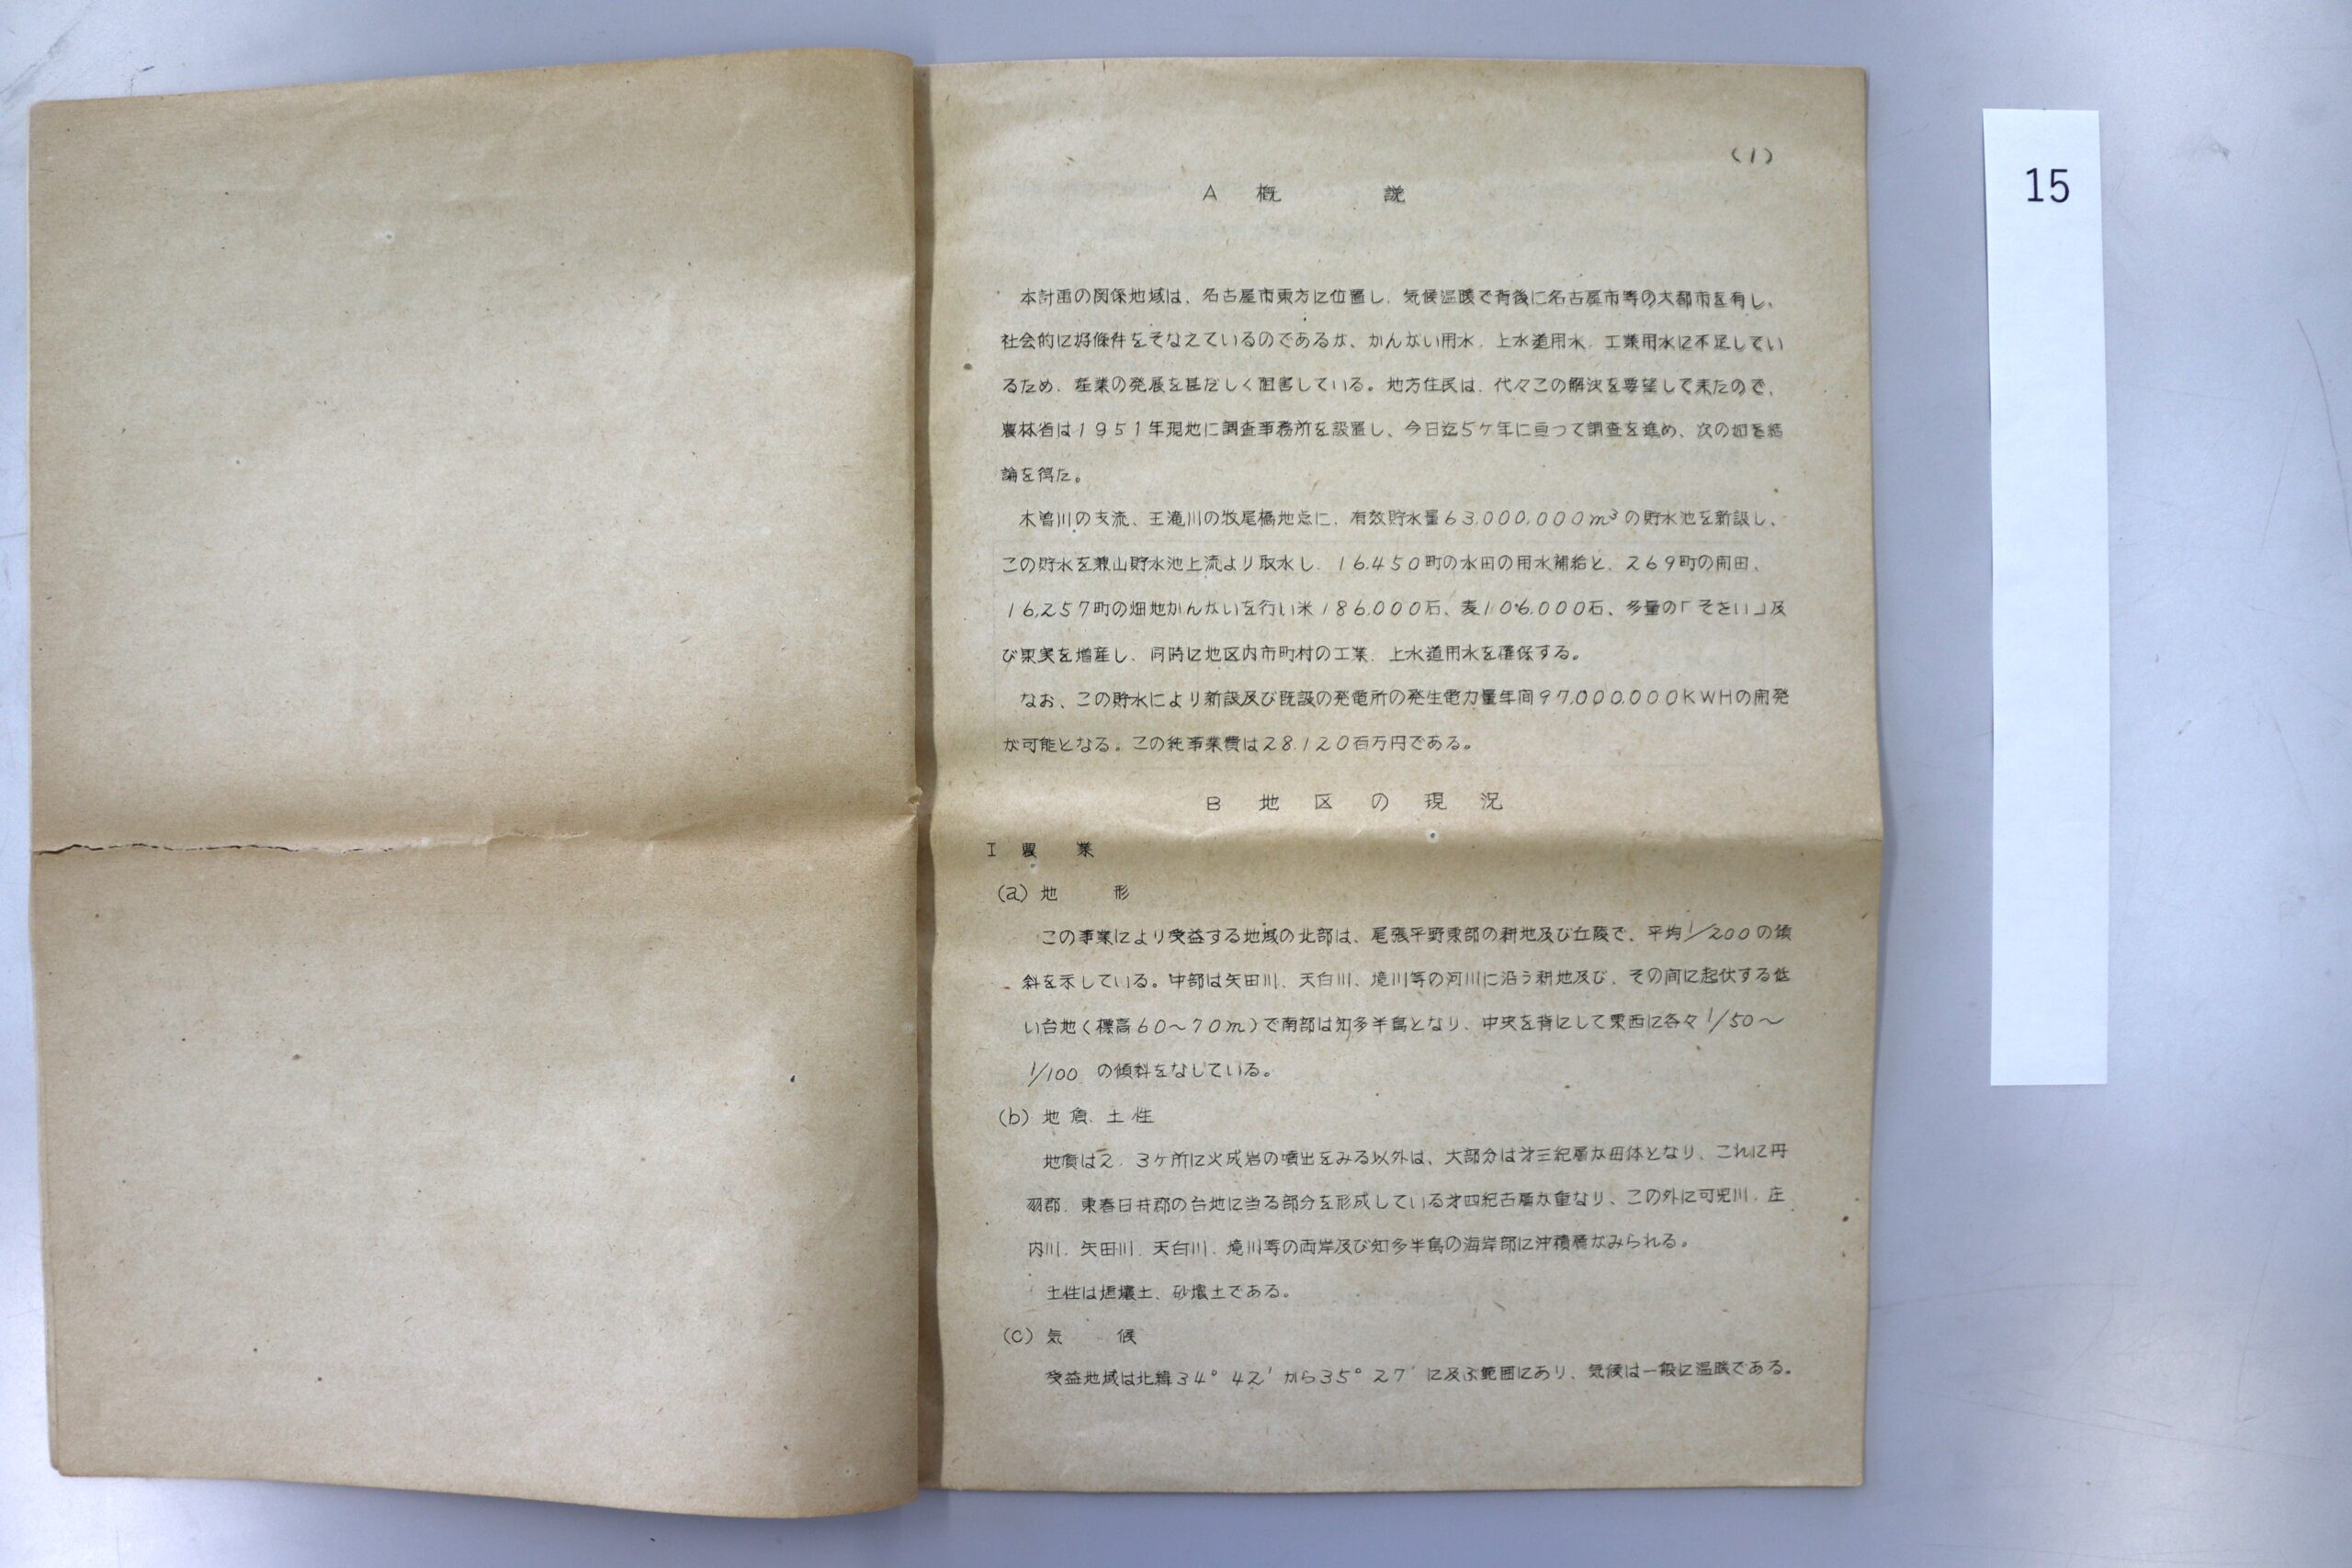 (1)
A 概 説
本計画の関係地域は、名古屋市東方に位置し、気候温暖で背後に名古屋市等の大都市を有し、
社会的に好條件をそなえているのであるが、かんがい用水、上水道用水、工業用水に不足してい
るため、産業の発展を甚だしく阻害している。地方住民は、代々この解決を要望して来たので、
農林省は1951年現地に調査事務所を設置し、今日迄5ケ年に亘って調査を進め、次の如き結
論を得た。
木曽川の支流、王滝川の牧尾橋地点に、有效貯水量63,000,000m³の貯水池を新設し、
この貯水を兼山貯水池上流より取水し、16,450町の水田の用水補給と、269町の開田、
16,257町の畑地かんがいを行い米186,000石、麦106,000石、多量の「そさい」及
び果実を増産し、同時に地区内市町村の工業、上水道用水を確保する。
なお、この貯水により新設及び既設の発電所の発生電力量年間97,000,000KWHの開発
が可能となる。この純事業費は28,120百万円である。
B 地 区 の 現 況
I 農 業
(a) 地 形
この事業により受益する地域の北部は、尾張平野東部の耕地及び丘陵で、平均1/200の傾
斜を示している。中部は矢田川、天白川、境川等の河川に沿う耕地及び、その間に起伏する低
い台地(標高60〜70m)で南部は知多半島となり、中央を背にして東西に各々1/50〜
1/100 の傾斜をなしている。
(b) 地質、土性
地質は2、3ケ所に火成岩の噴出をみる以外は、大部分は才三紀層が母体となり、これに丹
羽郡、東春日井郡の台地に当る部分を形成している才四紀古層が重なり、この外に可児川、庄
内川、矢田川、天白川、境川等の両岸及び知多半島の海岸部に沖積層がみられる。
土性は埴壤土、砂壤土である。
(c) 気 候
受益地域は北緯34°42′から35°27′に及ぶ範囲にあり、気候は一般に温暖である。
15